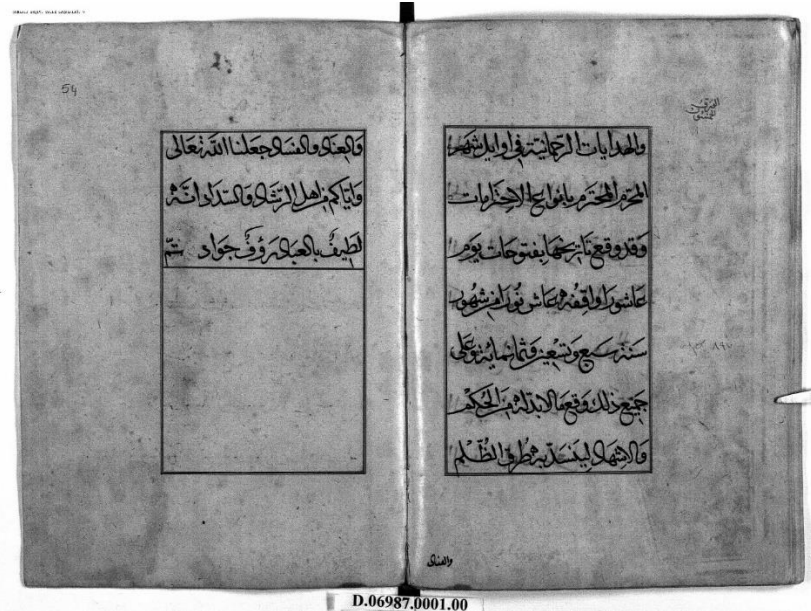 والهدايات الرحمانية فى اوايل شهور
المحرم المحترم بانواع الاحترامات
وقد وقع تاريخها بفتوحات يوم
عاشورا واقفه عاش نورا من شهور
سنة سبع وتسعين وثمانمايه وعلى
جميع ذلك وقع مالابد له من الحكم
والاشهاد لينسد به طرق الظلم
والعناد
54
والعناد والفساد جعلنا الله تعالى
واياكم من اهل الرشاد والسداد انه
لطيف بالعباد رؤف جواد تم
D.06987.0001.00